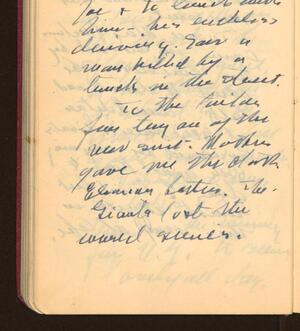 & to lunch with
him – his reckless
driving. Saw a
man killed by a
truck on the street.
To the tailor
for try on of the
new suit. Mother
gave me the
The
Giants lost the
world series.